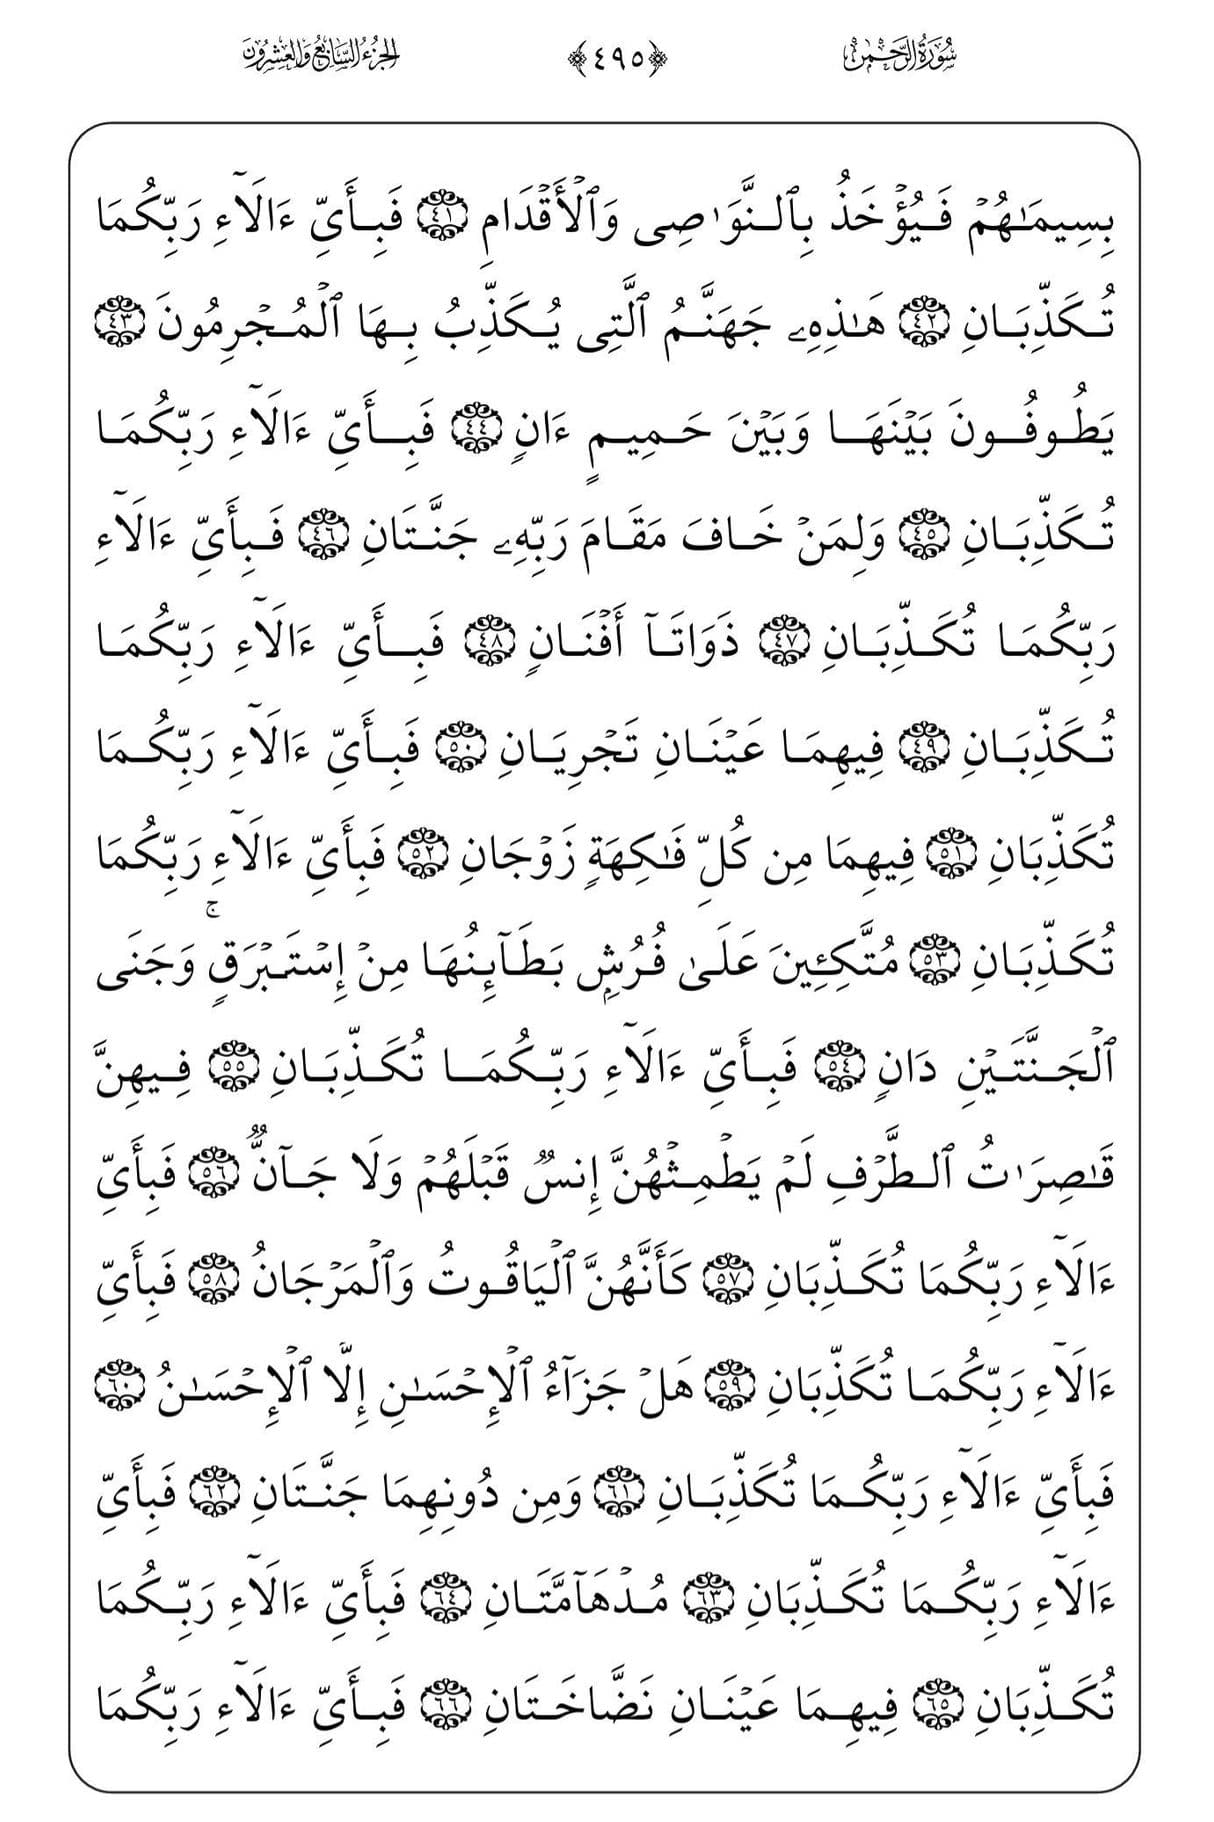 سُورَةُ الرَّحْمٰن ﴿٤٩٥﴾ الجُزْءُ السَّابِعُ وَالعِشْرُونَ
بِسِيمَـٰهُمۡ فَيُؤۡخَذُ بِٱلنَّوَٰصِى وَٱلۡأَقۡدَامِ ٤١ فَبِأَىِّ ءَالَآءِ رَبِّكُمَا
تُكَذِّبَانِ ٤٢ هَـٰذِهِۦ جَهَنَّمُ ٱلَّتِى يُكَذِّبُ بِهَا ٱلۡمُجۡرِمُونَ ٤٣
يَطُوفُونَ بَيۡنَهَا وَبَيۡنَ حَمِيمٍ ءَانٍ ٤٤ فَبِأَىِّ ءَالَآءِ رَبِّكُمَا
تُكَذِّبَانِ ٤٥ وَلِمَنۡ خَافَ مَقَامَ رَبِّهِۦ جَنَّتَانِ ٤٦ فَبِأَىِّ ءَالَآءِ
رَبِّكُمَا تُكَذِّبَانِ ٤٧ ذَوَاتَآ أَفۡنَانٍ ٤٨ فَبِأَىِّ ءَالَآءِ رَبِّكُمَا
تُكَذِّبَانِ ٤٩ فِيهِمَا عَيۡنَانِ تَجۡرِيَانِ ٥٠ فَبِأَىِّ ءَالَآءِ رَبِّكُمَا
تُكَذِّبَانِ ٥١ فِيهِمَا مِن كُلِّ فَـٰكِهَةٍ زَوۡجَانِ ٥٢ فَبِأَىِّ ءَالَآءِ رَبِّكُمَا
تُكَذِّبَانِ ٥٣ مُتَّكِـِٔينَ عَلَىٰ فُرُشِۭ بَطَآئِنُهَا مِنۡ إِسۡتَبۡرَقٍۚ وَجَنَى
ٱلۡجَنَّتَيۡنِ دَانٍ ٥٤ فَبِأَىِّ ءَالَآءِ رَبِّكُمَا تُكَذِّبَانِ ٥٥ فِيهِنَّ
قَـٰصِرَٰتُ ٱلطَّرۡفِ لَمۡ يَطۡمِثۡهُنَّ إِنسٌ قَبۡلَهُمۡ وَلَا جَآنٌّ ٥٦ فَبِأَىِّ
ءَالَآءِ رَبِّكُمَا تُكَذِّبَانِ ٥٧ كَأَنَّهُنَّ ٱلۡيَاقُوتُ وَٱلۡمَرۡجَانُ ٥٨ فَبِأَىِّ
ءَالَآءِ رَبِّكُمَا تُكَذِّبَانِ ٥٩ هَلۡ جَزَآءُ ٱلۡإِحۡسَـٰنِ إِلَّا ٱلۡإِحۡسَـٰنُ ٦٠
فَبِأَىِّ ءَالَآءِ رَبِّكُمَا تُكَذِّبَانِ ٦١ وَمِن دُونِهِمَا جَنَّتَانِ ٦٢ فَبِأَىِّ
ءَالَآءِ رَبِّكُمَا تُكَذِّبَانِ ٦٣ مُدۡهَآمَّتَانِ ٦٤ فَبِأَىِّ ءَالَآءِ رَبِّكُمَا
تُكَذِّبَانِ ٦٥ فِيهِمَا عَيۡنَانِ نَضَّاخَتَانِ ٦٦ فَبِأَىِّ ءَالَآءِ رَبِّكُمَا